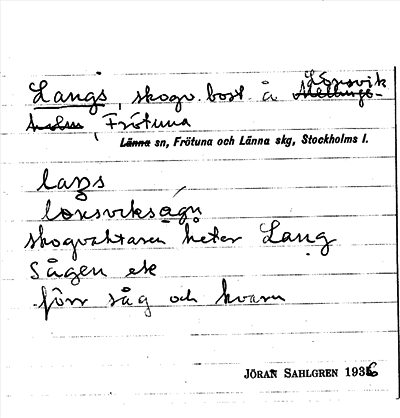 Langs, skogv. bost. å Lönsvik
Frötuna
Länna sn, Frötuna och Länna skg, Stockholms l.
laŋs
skogvaktaren heter Lang
Sågen etc
förr såg och kvarn
JÖRAN SAHLGREN 1936